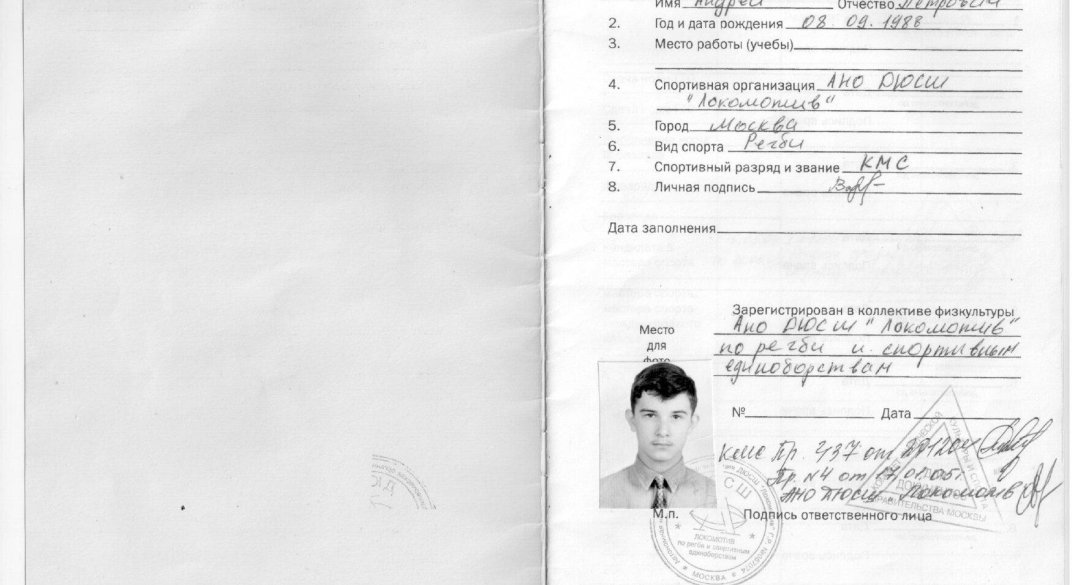 Имя Андрей Отчество Петрович
2. Год и дата рождения 08. 09. 1988
3. Место работы (учебы)
4. Спортивная организация АНО ДЮСШ
"Локомотив"
5. Город Москва
6. Вид спорта Регби
7. Спортивный разряд и звание КМС
8. Личная подпись
Дата заполнения
Зарегистрирован в коллективе физкультуры
Ано ДЮСШ "Локомотив"
по регби и спортивным
единоборствам
Место
для
фото
№ Дата
КМС Пр. 437 от
Пр. №4 от 17.01.05г.
АНО ДЮСШ Локомотив
М.п. Подпись ответственного лица
ПРАВИТЕЛЬСТВА МОСКВЫ
ЛОКОМОТИВ
по регби и спортивным
единоборствам
* МОСКВА *